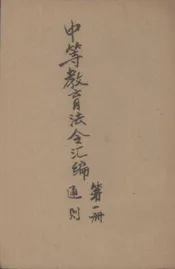 中等教育法令汇编
通则
第一册